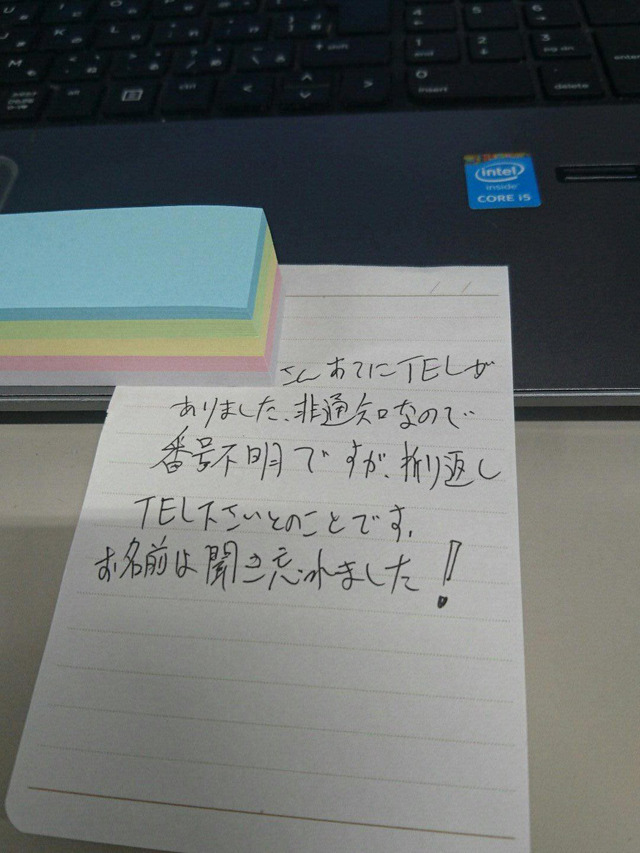 intel
inside
CORE i5
enter
insert
delete
end
pg dn
alt
ctrl
さんあてにTELが
ありました、非通知なので
番号不明ですが、折り返し
TEL下さいとのことです。
お名前は聞き忘れました!